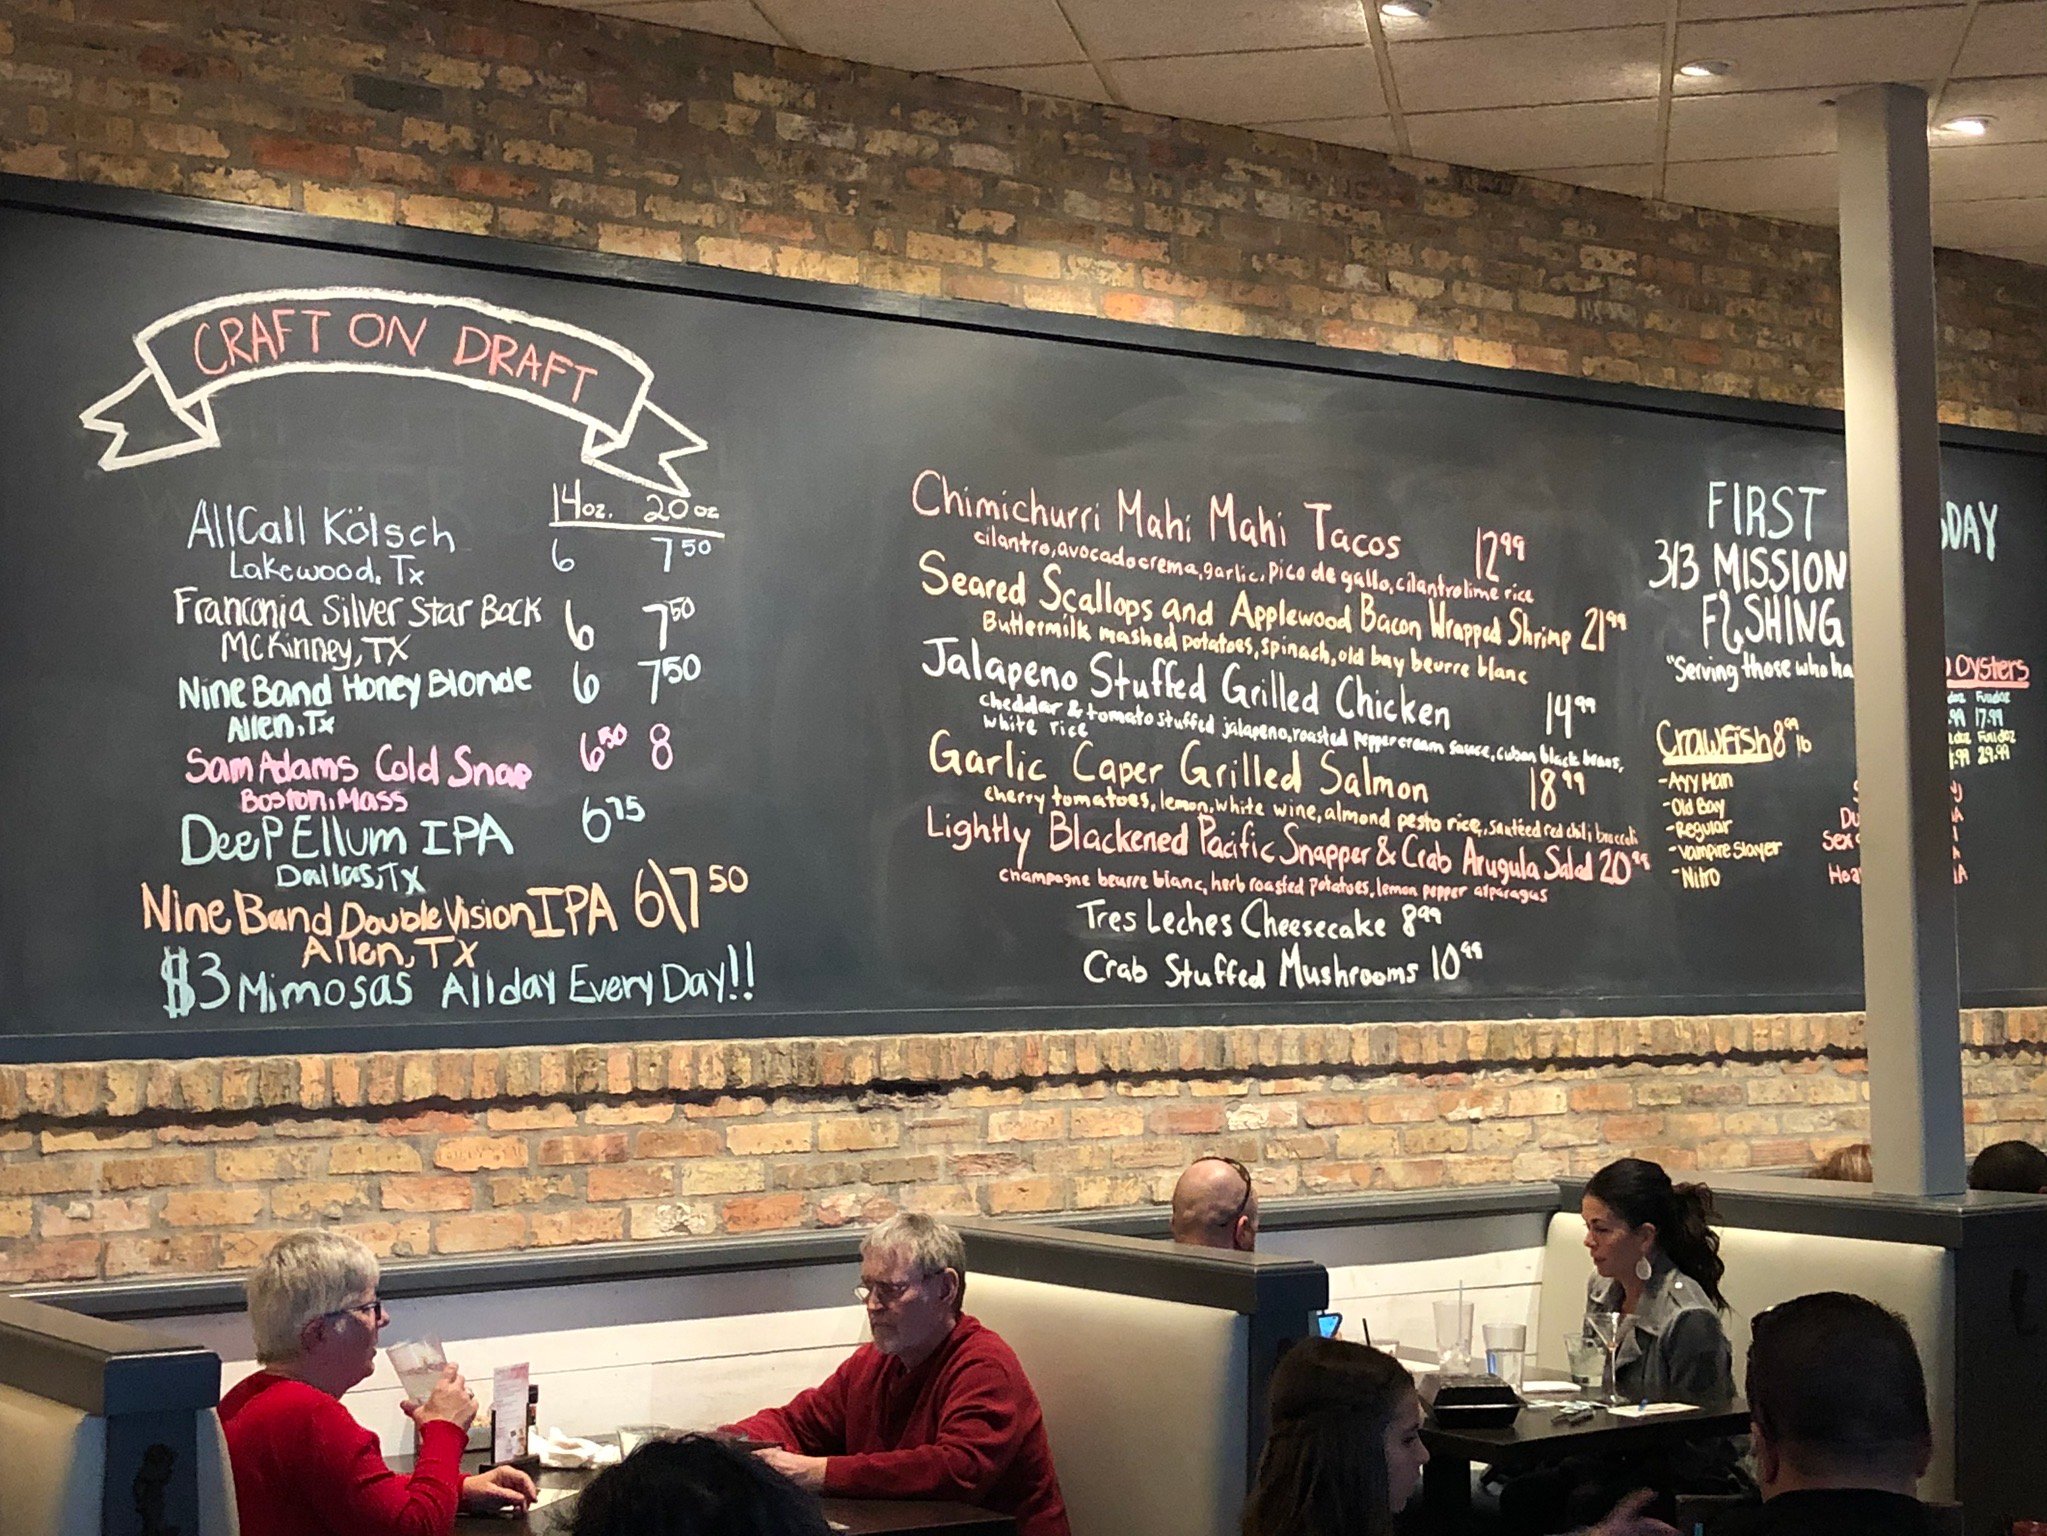 CRAFT ON DRAFT
14oz. 20oz
AllCall Kölsch 6 7 50
Lakewood, Tx
Franconia Silver Star Bock 6 7 50
McKinney, TX
Nine Band Honey Blonde 6 7 50
Allen, Tx
Sam Adams Cold Snap 6 50 8
Boston, Mass
Deep Ellum IPA 6 75
Dallas, TX
Nine Band Double Vision IPA 6\7 50
Allen, TX
$3 Mimosas All day Every Day!!
Chimichurri Mahi Mahi Tacos 12 99
cilantro, avocado crema, garlic, pico de gallo, cilantro lime rice
Seared Scallops and Applewood Bacon Wrapped Shrimp 21 99
Buttermilk mashed potatoes, spinach, old bay beurre blanc
Jalapeno Stuffed Grilled Chicken 14 99
cheddar & tomato stuffed jalapeno, roasted pepper cream sauce, cuban black beans,
white rice
Garlic Caper Grilled Salmon 18 99
cherry tomatoes, lemon, white wine, almond pesto rice, sautéed red chili broccoli
Lightly Blackened Pacific Snapper & Crab Arugula Salad 20 99
champagne beurre blanc, herb roasted potatoes, lemon pepper asparagus
Tres Leches Cheesecake 8 99
Crab Stuffed Mushrooms 10 99
FIRST DAY
3/3 MISSION
FISHING
"Serving those who ha
Crawfish 8 99 lb
-Ayy Man
-Old Bay
-Regular
-Vampire Slayer
-Nitro
Oysters
doz Full doz
.99 17.99
doz Full doz
.99 29.99